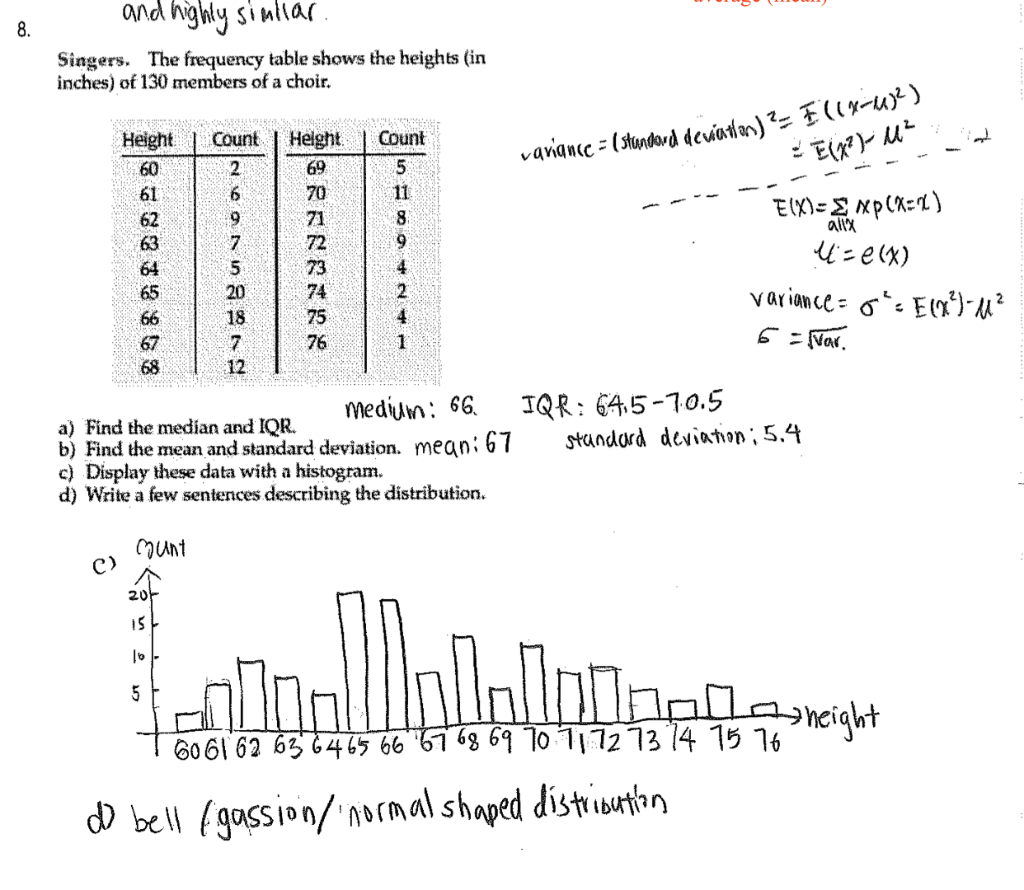 average (mean)
and highly similar.
8.
Singers. The frequency table shows the heights (in
inches) of 130 members of a choir.
Height Count Height Count
60 2 69 5
61 6 70 11
62 9 71 8
63 7 72 9
64 5 73 4
65 20 74 2
66 18 75 4
67 7 76 1
68 12
variance = (standard deviation)² = E((x-μ)²)
= E(x²) - μ²
E(X) = Σ xp(X=x)
all x
μ = e(x)
variance = σ² = E(x²) - μ²
σ = √Var.
medium: 66 IQR: 64.5-70.5
a) Find the median and IQR.
b) Find the mean and standard deviation. mean: 67 standard deviation: 5.4
c) Display these data with a histogram.
d) Write a few sentences describing the distribution.
c) count
20
15
10
5
60 61 62 63 64 65 66 67 68 69 70 71 72 73 74 75 76 height
d) bell /gassion/ normal shaped distribution